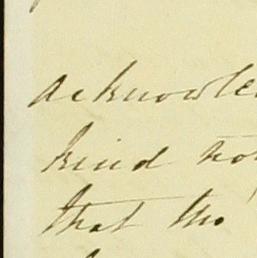 acknowle
kind no
that tho'